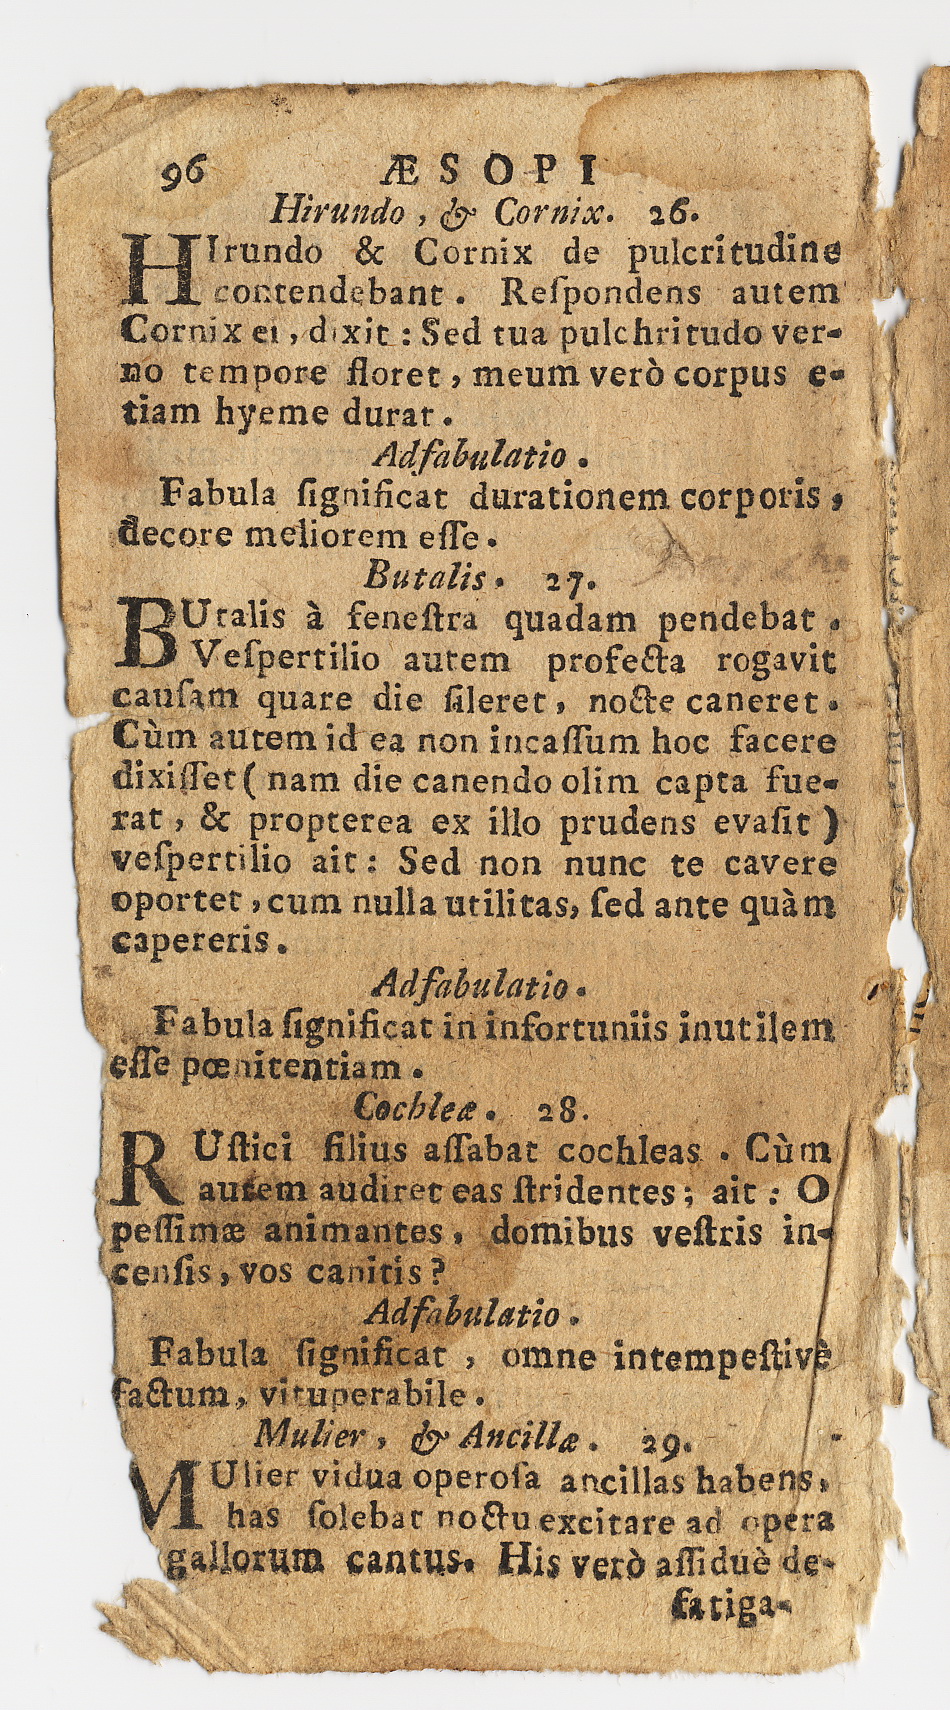 96 ÆSOPI
Hirundo, & Cornix. 26.
HIrundo & Cornix de pulcritudine
contendebant. Reſpondens autem
Cornix ei, dixit: Sed tua pulchritudo ver-
no tempore floret, meum verò corpus e-
tiam hyeme durat.
Adfabulatio.
Fabula ſignificat durationem corporis,
decore meliorem eſſe.
Butalis. 27.
BUtalis à feneſtra quadam pendebat.
Veſpertilio autem profecta rogavit
cauſam quare die ſileret, nocte caneret.
Cùm autem id ea non incaſſum hoc facere
dixiſſet (nam die canendo olim capta fue-
rat, & propterea ex illo prudens evaſit)
veſpertilio ait: Sed non nunc te cavere
oportet, cum nulla utilitas, ſed ante quàm
capereris.
Adfabulatio.
Fabula ſignificat in infortuniis inutilem
eſſe pœnitentiam.
Cochleæ. 28.
RUſtici filius aſſabat cochleas. Cùm
autem audiret eas ſtridentes; ait: O
peſſimæ animantes, domibus veſtris in-
cenſis, vos canitis?
Adfabulatio.
Fabula ſignificat, omne intempeſtivè
factum, vituperabile.
Mulier, & Ancillæ. 29.
MUlier vidua operoſa ancillas habens,
has ſolebat noctu excitare ad opera
gallorum cantus. His verò aſſiduè de-
fatiga-